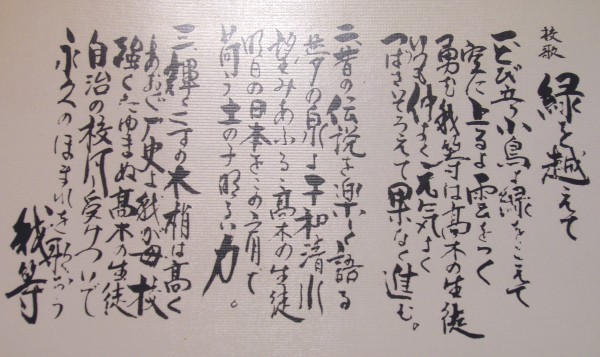 校歌
緑を越えて
一とび立つ小鳥よ緑をこえて
空に上るよ雲をつく
勇む我等は高木の生徒
いつも仲よく元気よく
つばさそろえて果なく進む。
二昔の伝説を楽しく語る
夢の泉よ平和清水
望みあふるる高木の生徒
明日の日本をこの肩で
荷う土の子明るい力。
三輝くくすの木梢は高く
あおぐ歴史よ我が母校
強くたゆまぬ高木の生徒
自治の校風受けついで
永久のほまれを歌おう
我等